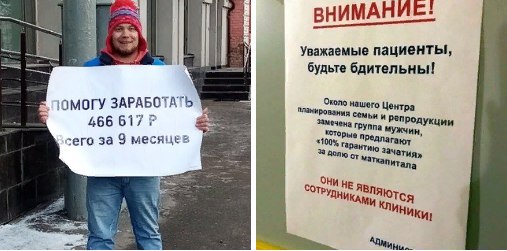 ПОМОГУ ЗАРАБОТАТЬ
466 617 Р
Всего за 9 месяцев
ВНИМАНИЕ!
Уважаемые пациенты,
будьте бдительны!
Около нашего Центра
планирования семьи и репродукции
замечена группа мужчин,
которые предлагают
«100% гарантию зачатия»
за долю от маткапитала
ОНИ НЕ ЯВЛЯЮТСЯ
СОТРУДНИКАМИ КЛИНИКИ!
Админис